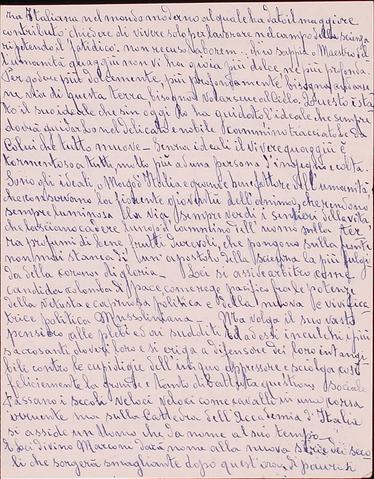 tra Italiana nel mondo moderno al quale ha dato il maggiore
contributo chiedere di vivere solo per lavorare nel campo della scienza
ripetendo il fatidico: non recuso laborem. Si o sappia Maestro
l'umanità quaggiù non vi ha gioia più dolce, nè più profonda.
Per godere più dolcemente, più profondamente bisogna
da questa terra, bisogna volarsene al Cielo. E questo
to il suo ideale che sin oggi lo ha guidato l'ideale che sempre
dovrà guidarlo nel delicato e nobile cammino tracciato da
Colui che tutto muove. Senza ideali il vivere quaggiù è
tormentoso a tutti, molto più ad una persona d'ingegno e colta.
Sono gli ideali, Mago d'Italia e grande benefattore dell'umanità
che conservano la fiorente gioventù dell'animo, che rendono
sempre luminosa la via, sempre verdi i sentieri della vita
da lasciano cadere lungo il cammino dell'uomo sulla ter
ra profumi di bene frutti durevoli, che pongono sulla fronte
non mai stanca di un apostolo della scienza la più fulgi
da della corona di gloria. Loci si assise artico come
candida colomba di pace come rege pacifico fra le potenze
della vetusta e capricciosa politica e della nuova vivifica
trice politica Mussoliniana. Ma volga il suo vasto
pensiero alle plebi ed ai sudditi ed adessi inculchi i più
sacrosanti doveri loro e si eriga a difensore dei loro intangi
bili contro le cupidigie dell'iniquo oppressore e sciolga così
felicemente la grande e tanto dibattuta questione sociale
Passano i secoli veloci veloci come cavalli in una corsa
irruente ma sulla Cattedra dell'Accademia d'Italia
si asside un Uomo che da nome al suo tempo.
E Loci divino Marconi darà nome alla nuova serie dei seco
li che sorgerà smagliante dopo quest'ora di paurosi